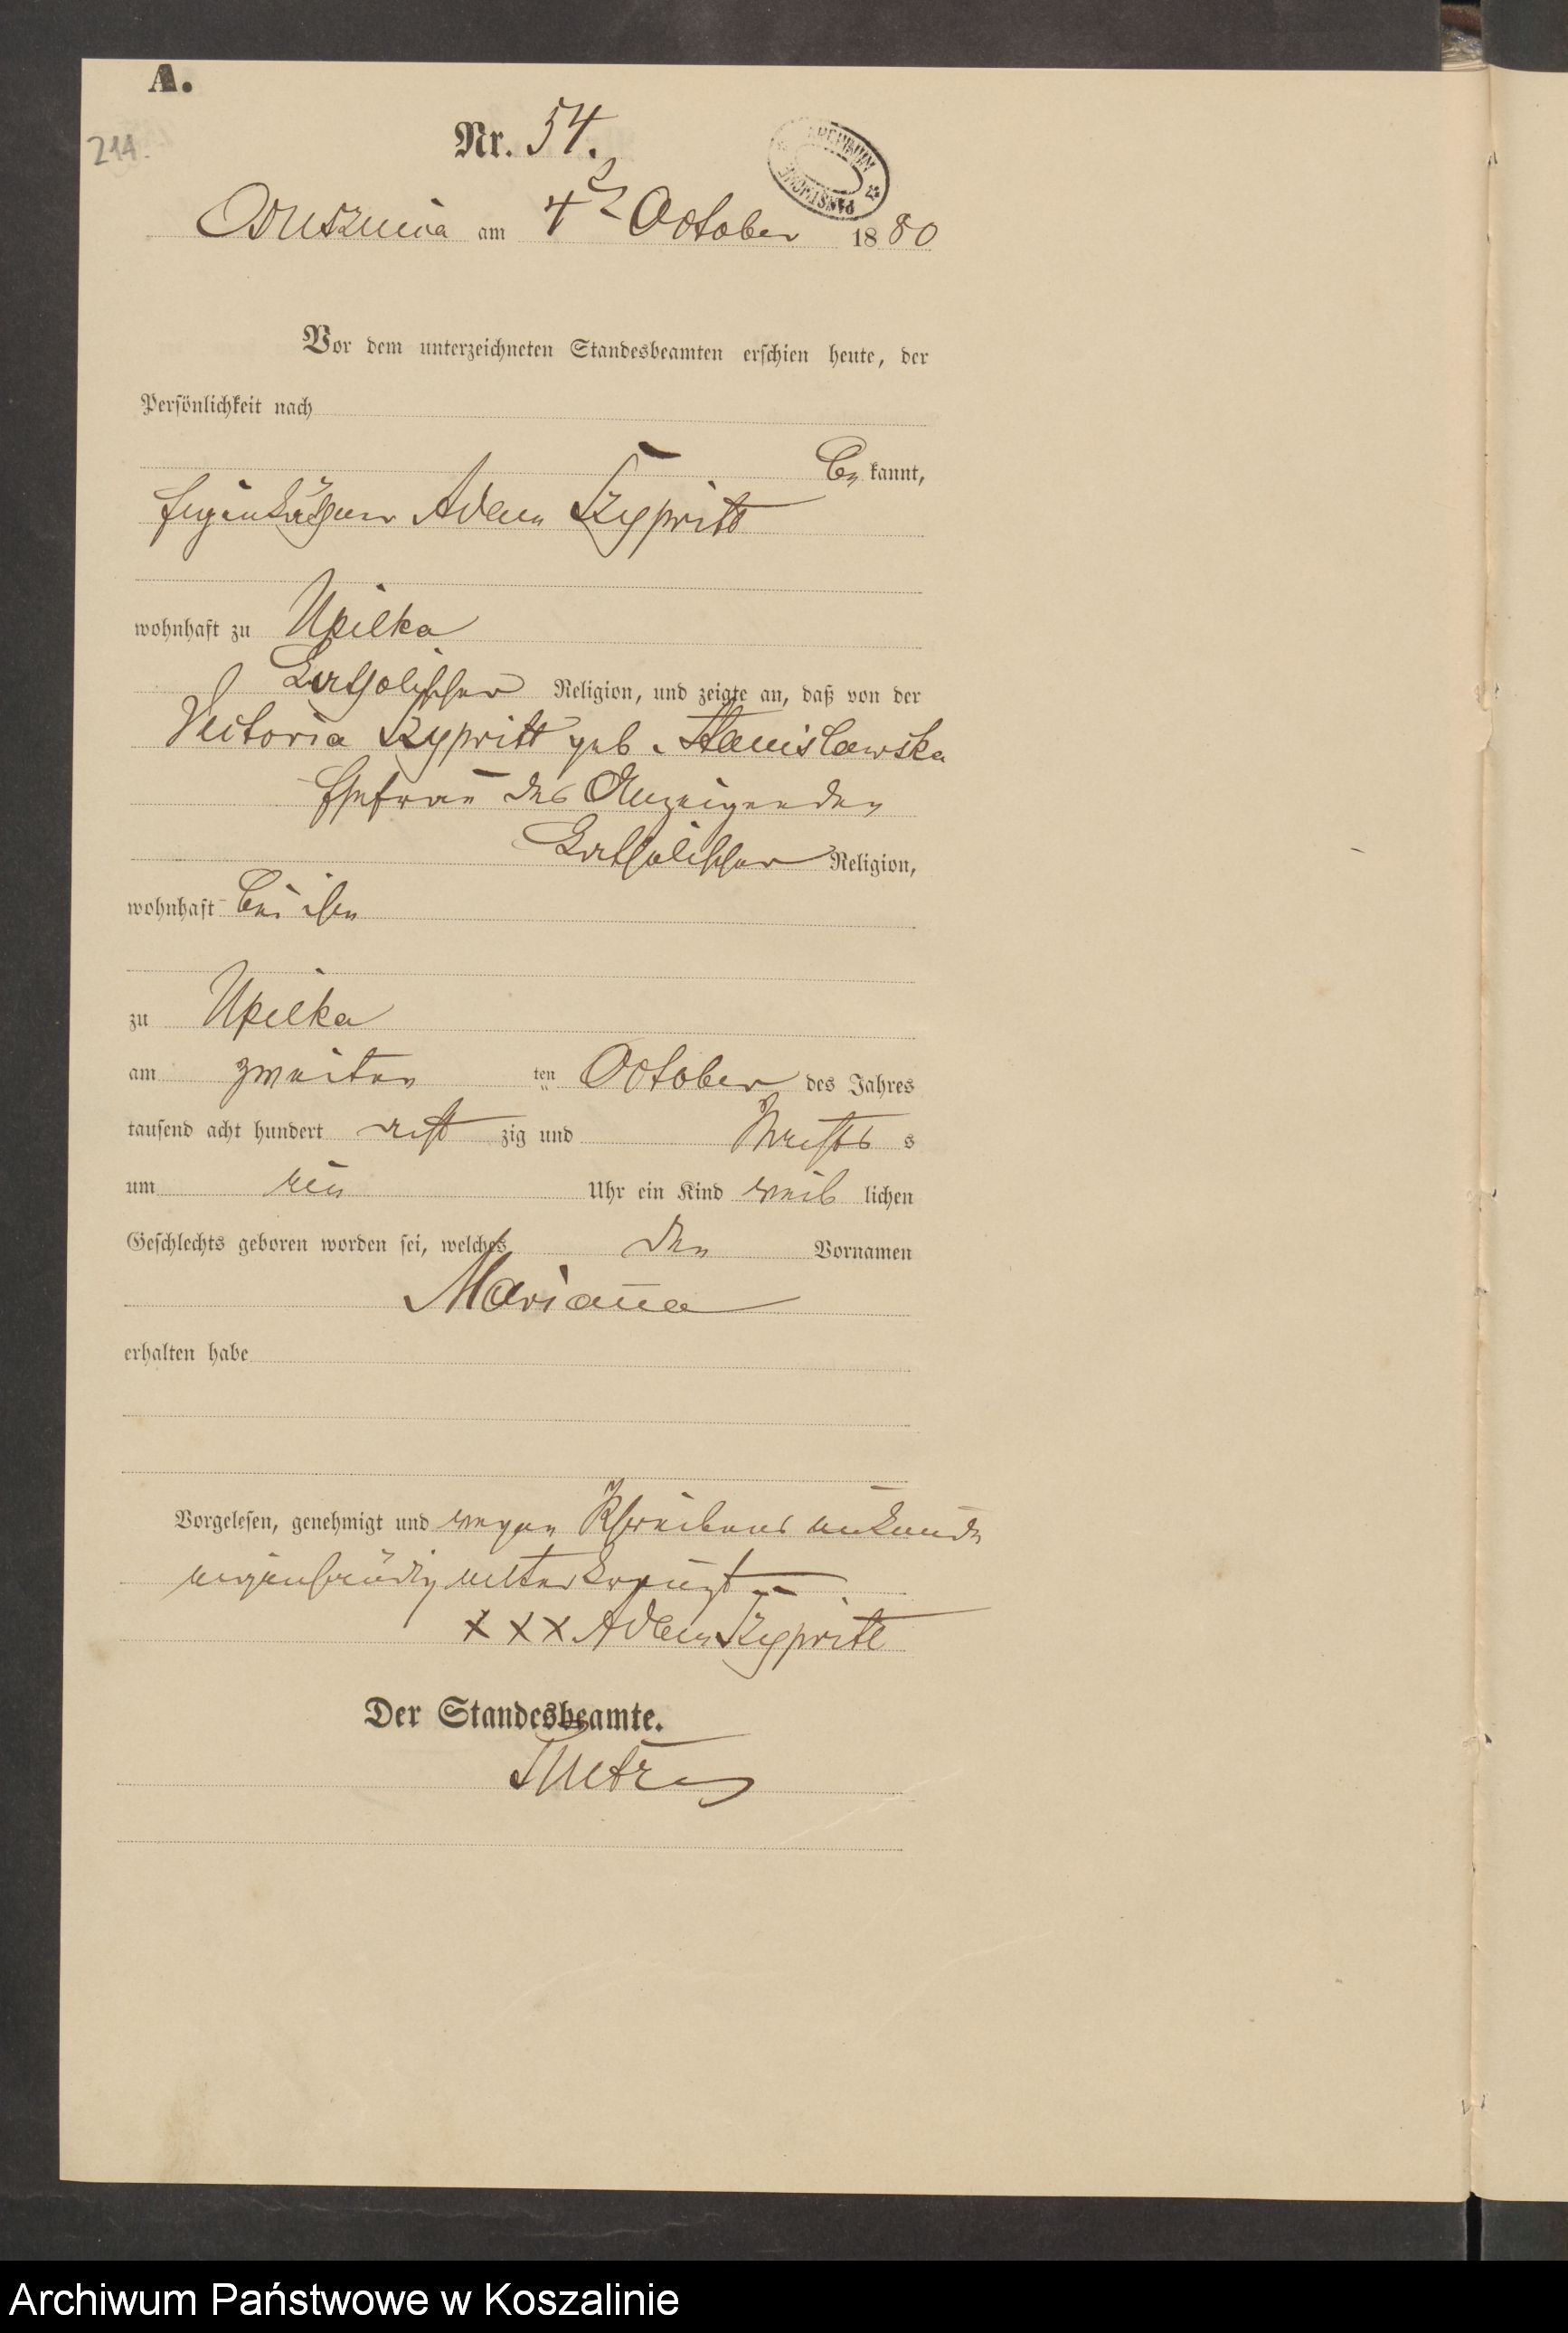 A.
214.
Nr. 54.
ARCHIWUM PAŃSTWOWE
Osuszniça am 4t October 1880
Vor dem unterzeichneten Standesbeamten erschien heute, der
Persönlichkeit nach
be kannt,
Eigenkäthner Adam Szypritt
wohnhaft zu Upilka
katholischer Religion, und zeigte an, daß von der
Victoria Szypritt geb. Stanislawska
Ehefrau des Anzeigenden
katholischer Religion,
wohnhaft bei ihm
zu Upilka
am zweiten ten October des Jahres
tausend acht hundert acht zig und Nachts s
um ein Uhr ein Kind weib lichen
Geschlechts geboren worden sei, welches den Vornamen
Mariana
erhalten habe
Vorgelesen, genehmigt und wegen Schreibens unkunde
eigenhändig unterkreuzt
XXX Adam Szypritt
Der Standesbeamte.
Archiwum Państwowe w Koszalinie